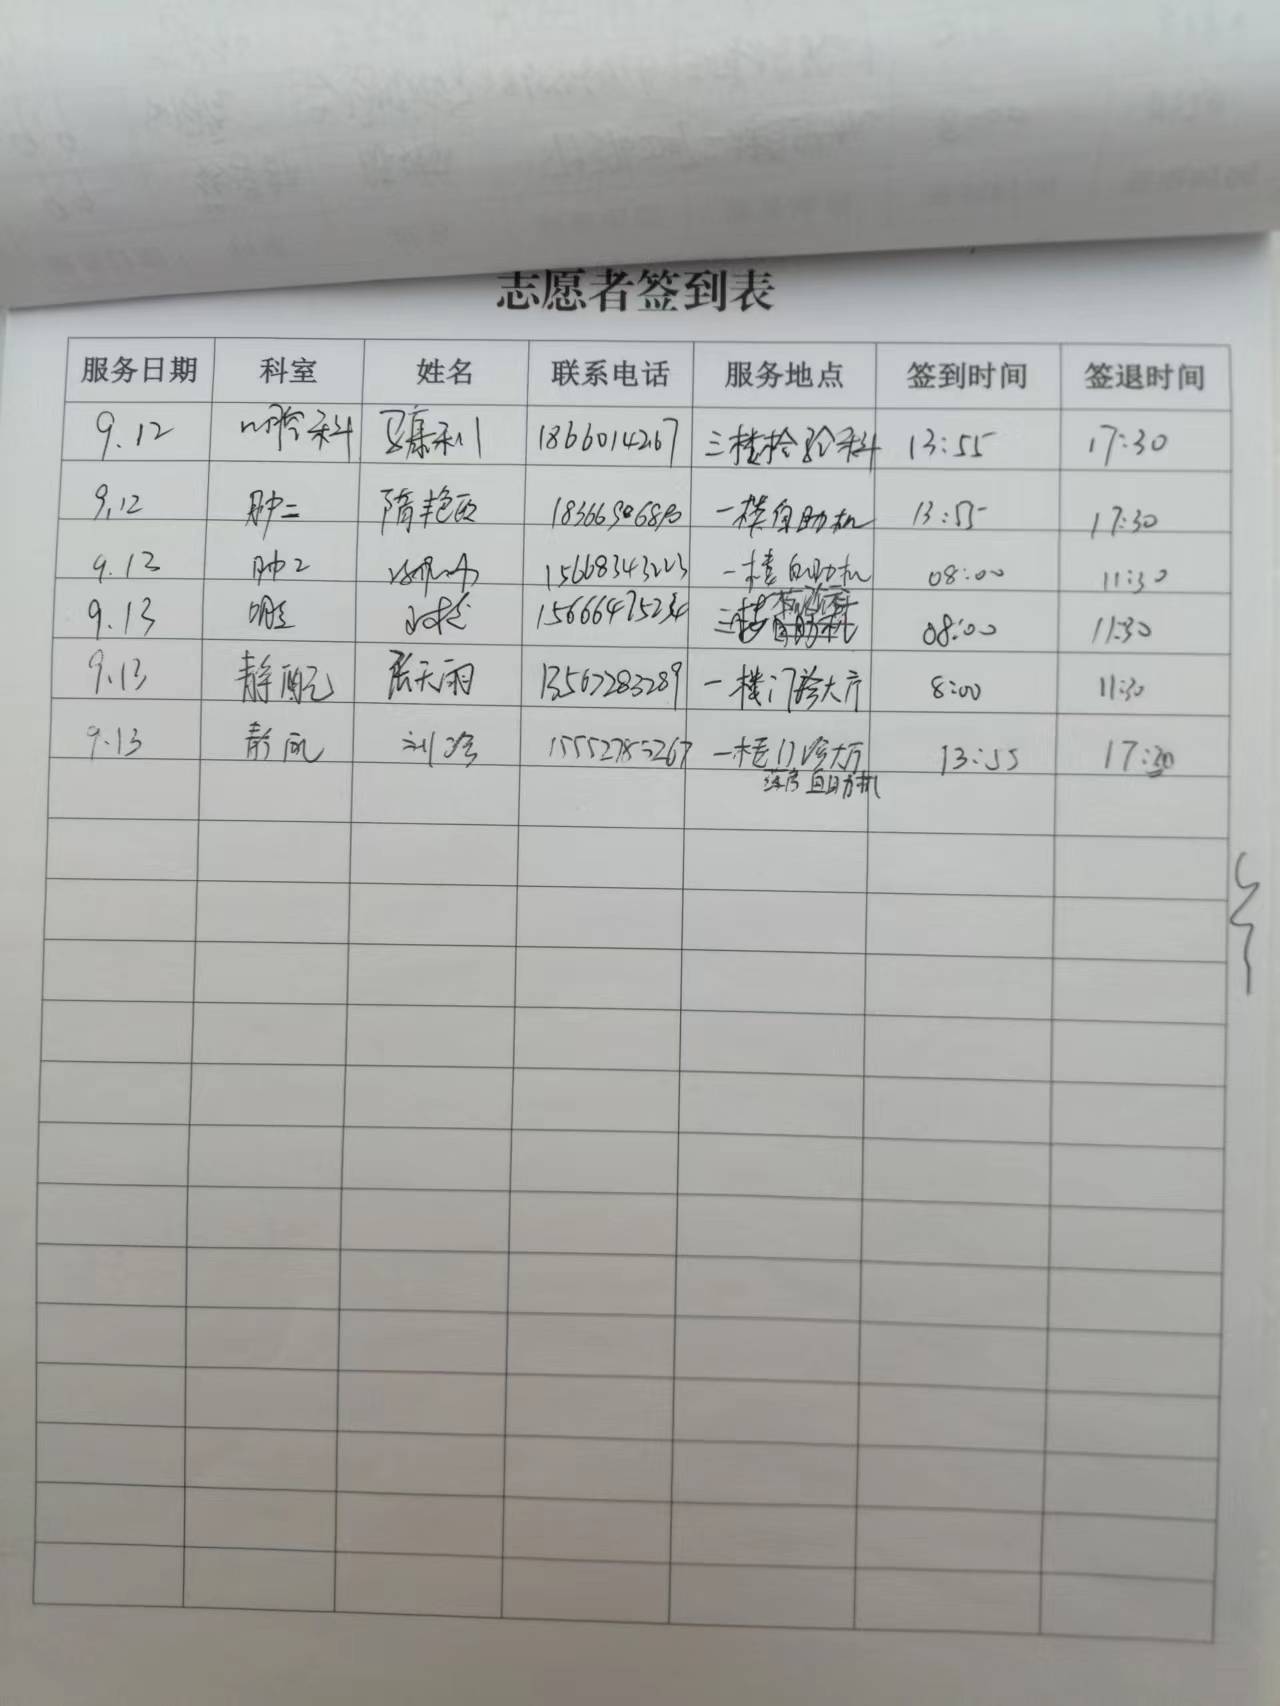 志愿者签到表
服务日期 科室 姓名 联系电话 服务地点 签到时间 签退时间
9.12 口腔科 1866014267 三楼检验科 13:55 17:30
9.12 肿二 隋艳 一楼自助机 13:55 17:30
9.13 肿2 15668343223 一楼自助机 08:00 11:30
9.13 15666475234 三楼 08:00 11:30
9.13 静配 张天雨 13562283289 一楼门诊大厅 8:00 11:30
9.13 静配 刘 15552785267 一楼门诊大厅 13:55 17:30
药房自助机